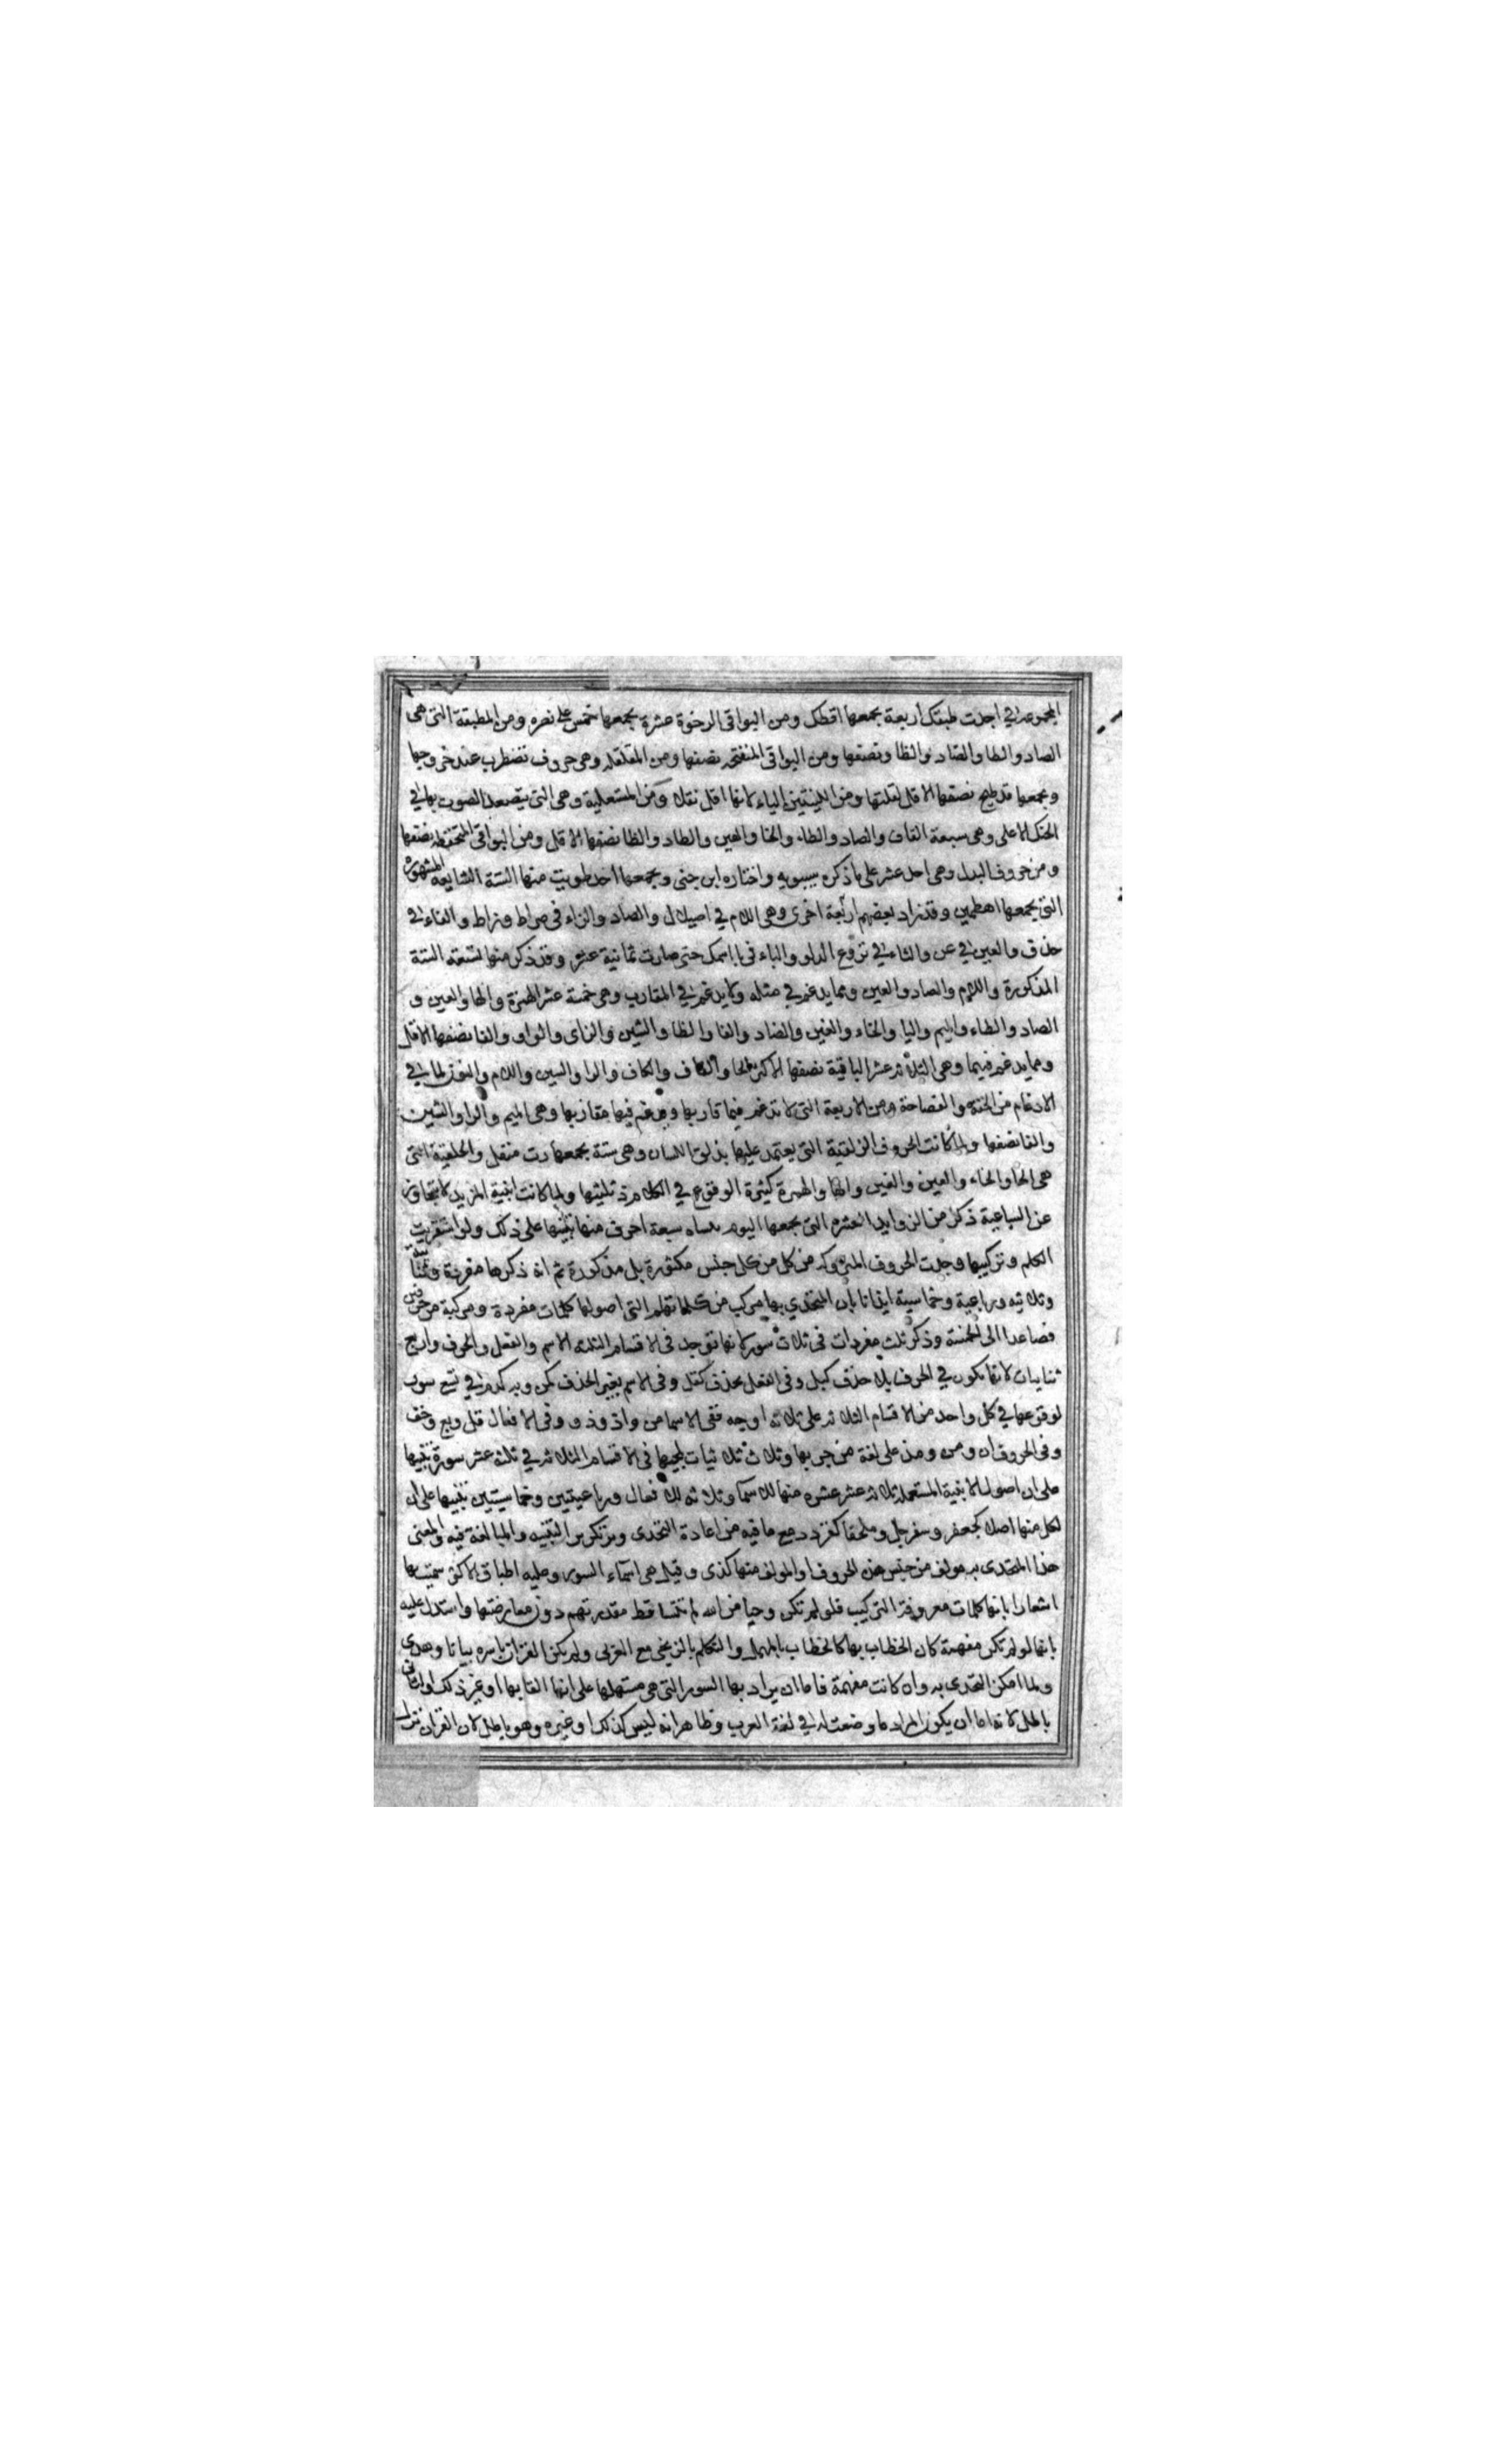 المجموعة في اجدت طبقك اربعة يجمعها اقطك ومن البواقي الرخوة عشرة يجمعها حمس على نصره ومن المطبقة التي هي
الصاد والطا والضاد والظا ونصفها ومن البواقي المنفتحه نصفها ومن القلقله وهي حروف تضطرب عند خروجها
ويجمعها قد طبج نصفها الاقل لقلتها ومن اللينتين الياء لانها اقل ثقلا ومن المستعلية وهي التي يتصعد الصوت بها في
الحنك الاعلى وهي سبعة القاف والصاد والطاء والخا والغين والضاد والظا نصفها الاقل ومن البواقي المنخفظه نصفها
ومن حروف البدل وهي احد عشر على ما ذكره سيبويه واختاره ابن جني ويجمعها اجد طويت منها الستة الشايعه المشهوره
التي يجمعها اهطمين وقد زاد بعضهم اربعة اخرى وهي اللام في اصيلال والصاد والزاء في صراط وزراط والفاء في
جدف والعين في عن والثاء في ثروغ الدلو والباء في با اسمك حتى صارت ثمانية عشر وقد ذكر منها تسعة الستة
المذكورة واللام والصاد والعين ومما يدغم في مثله ولا يدغم في المقارب وهي خمسة عشر الهمزة والها والعين و
الصاد والطاء والميم واليا والخاء والغين والضاد والفا والظا والشين والزاى والواو والفا نصفها الاقل
ومما يدغم فيهما وهي الثلاثة عشر الباقية نصفها الاكثر الحا والقاف والكاف والرا والسين واللام والنون لما في
الادغام من الخفة والفصاحة ومن الاربعة التي لا تدغم فيما قاربها ويدغم فيها مقاربها وهي الميم والرا والشين
والفا نصفها ولما كانت الحروف الزلقية التي يعتمد عليها بذلق اللسان وهي ستة يجمعها رب منفل والحلقية التي
هي الحا والخاء والعين والغين والها والهمزة كثيرة الوقوع في الكلام ذكر ثلثيها ولما كانت ابنية المزيد لا تتجاوز
عن السباعية ذكر من الزوايد العشره التي يجمعها اليوم تنساه سبعة احرف منها تنبيها على ذلك ولو استقريت
الكلم وتركيبها وجدت الحروف المتروكه من كل من كل جنس مكثورة بل مذكورة ثم انه ذكرها مفردة وثنائية
وثلاثيه ورباعية وخماسية ايذانا بان المتحدي بها مركب من كلماتهم التي اصولها كلمات مفردة ومركبة من حرفين
فصاعدا الى الخمسة وذكر ثلث مفردات في ثلاث سور لانها توجد في الاقسام الثلاثه الاسم والفعل والحرف واربع
ثنايات لانها تكون في الحرف بلا حذف كبل وفي الفعل بحذف كقل وفي الاسم بغير الحذف كمن وبه كدم في تسع سور
لوقوعها في كل واحد من الاقسام الثلاثة على ثلاثة اوجه ففي الاسما من واذ وذو وفي الافعال قل وبع وخف
وفي الحروف ان ومن ومذ على لغة من جر بها وثلاث ثلاثيات لمجيها في الاقسام الثلاثة في ثلثة عشر سورة تنبيها
على ان اصول الابنية المستعملة ثلاثة عشر عشره منها للاسما وثلاثه للافعال ورباعيتين وخماسيتين تنبيها على ان
لكل منها اصلا كجعفر وسفرجل وملحقا كقردد مع ما فيه من اعادة التحدى وتكرير التنبيه والمبالغة فيه والمعنى
هذا المتحدى به مولف من جنس هذه الحروف او المولف منها كذى وقيل هي اسماء السور وعليه اطباق الاكثر سميت بها
اشعارا بانها كلمات معروفة التركيب فلو لم تكن وحيا من الله لم تتساقط مقدرتهم دون معارضتها واستدل عليه
بانها لو لم تكن مفهمة كان الخطاب بها كالخطاب بالمهمل والتكلم بالزنجي مع العربي ولم يكن القران باسره بيانا وهدى
ولما امكن التحدى به وان كانت مفهمة فاما ان يراد بها السور التي هي مستهلها على انها القابها او غير ذلك والثاني
باطل لانه اما ان يكون المراد ما وضعت له في لغة العرب وظاهر انه ليس كذلك او غيره وهو باطل لان القران نزل